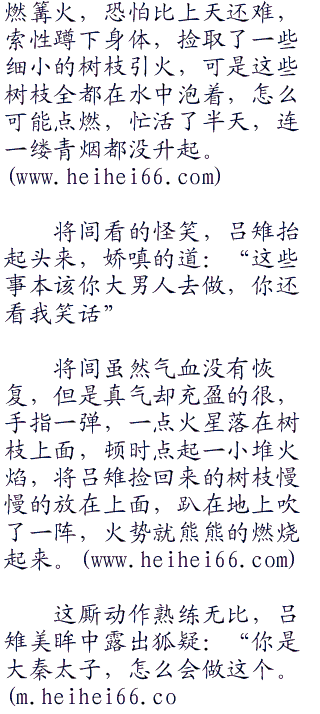 燃篝火，恐怕比上天还难，
索性蹲下身体，捡取了一些
细小的树枝引火，可是这些
树枝全都在水中泡着，怎么
可能点燃，忙活了半天，连
一缕青烟都没升起。
(www.heihei66.com)
将闾看的怪笑，吕雉抬
起头来，娇嗔的道：“这些
事本该你大男人去做，你还
看我笑话”
将闾虽然气血没有恢
复，但是真气却充盈的很，
手指一弹，一点火星落在树
枝上面，顿时点起一小堆火
焰，将吕雉捡回来的树枝慢
慢的放在上面，趴在地上吹
了一阵，火势就熊熊的燃烧
起来。(www.heihei66.com)
这厮动作熟练无比，吕
雉美眸中露出狐疑：“你是
大秦太子，怎么会做这个。
(m.heihei66.co